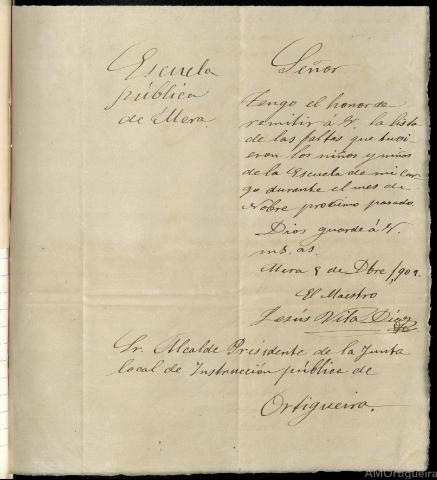 Escuela
pública
de Mera.
Señor
Tengo el honor de
remitir á V. la lista
de las faltas que tuvi-
eron los niños y niñas
de la Escuela de mi car-
go durante el mes de
Nobre próximo pasado.
Dios guarde á V.
ms. as.
Mera 8 de Dbre/190
El Maestro
Jesús Vila Díaz
Sr. Alcalde Presidente de la Junta
local de Instrucción pública de
Ortigueira.
AMOrtigueira